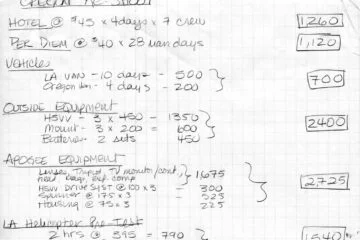 HOTEL @ $45 x 4 days x 7 crew 1,260
PER DIEM @ $40 x 28 man days 1,120
VEHICLES
LA VAN - 10 days - 500
Oregon Van - 4 days - 200 700
OUTSIDE EQUIPMENT
HSVV - 3 x 450 - 1350
Mount - 3 x 200 = 600 2400
Batteries - 2 sets 450
APOGEE EQUIPMENT
Lenses, Tripod, TV monitor/cont. 1,675
HSVV Drive Syst @ 100 x 3 - 300 2,725
Spinner @ 175 x 3 - 525
Housing @ 75 x 3 225
LA Helicopter Pre-Test
2 hrs @ 395 = 790